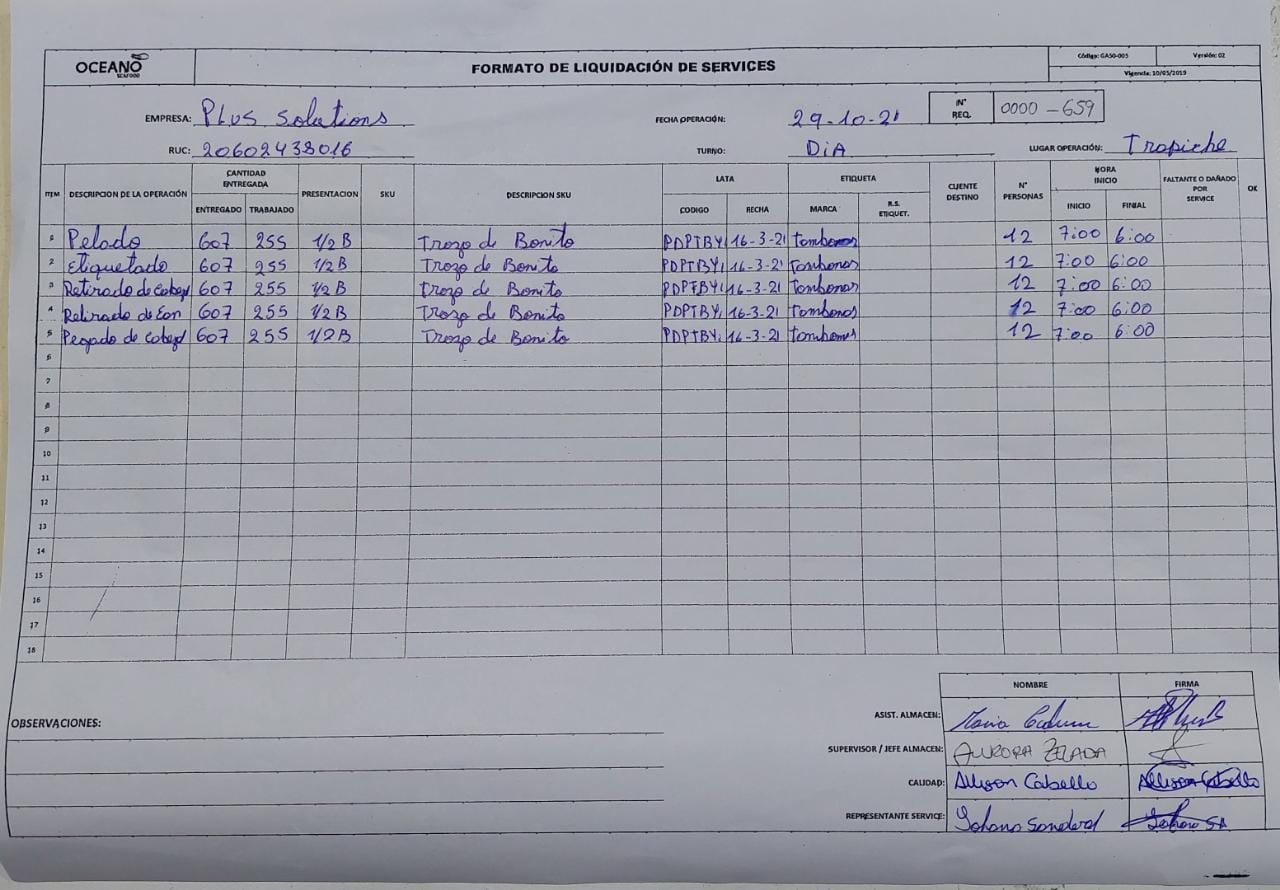 OCEANO
SEAFOOD
FORMATO DE LIQUIDACIÓN DE SERVICES
Código: GASO-005 Versión: 02
Vigencia: 10/05/2019
EMPRESA: PLUS Solutions
FECHA OPERACIÓN: 29-10-21
N° REQ. 0000-659
RUC: 20602438016
TURNO: DiA
LUGAR OPERACIÓN: Trapiche
ITEM DESCRIPCION DE LA OPERACIÓN CANTIDAD ENTREGADA PRESENTACION SKU DESCRIPCION SKU LATA ETIQUETA CLIENTE DESTINO N° PERSONAS HORA INICIO FALTANTE O DAÑADO POR SERVICE OK
ENTREGADO TRABAJADO CODIGO FECHA MARCA R.S. ETIQUET. INICIO FINIAL
1 Pelado 607 255 1/2 B Trozo de Bonito PDPTBY 16-3-21 12 7:00 6:00
2 Etiquetado 607 255 1/2 B Trozo de Bonito PDPTBY 16-3-21 12 7:00 6:00
3 Retirado de 607 255 1/2 B Trozo de Bonito PDPTBY 16-3-21 12 7:00 6:00
4 Retirado de 607 255 1/2 B Trozo de Bonito PDPTBY 16-3-21 12 7:00 6:00
5 Pegado de 607 255 1/2 B Trozo de Bonito PDPTBY 16-3-21 12 7:00 6:00
6
7
8
9
10
11
12
13
14
15
16
17
18
NOMBRE FIRMA
OBSERVACIONES:
ASIST. ALMACEN:
SUPERVISOR / JEFE ALMACEN: AURORA ZELADA
CALIDAD: Allison Cabello Allison Cabello
REPRESENTANTE SERVICE: